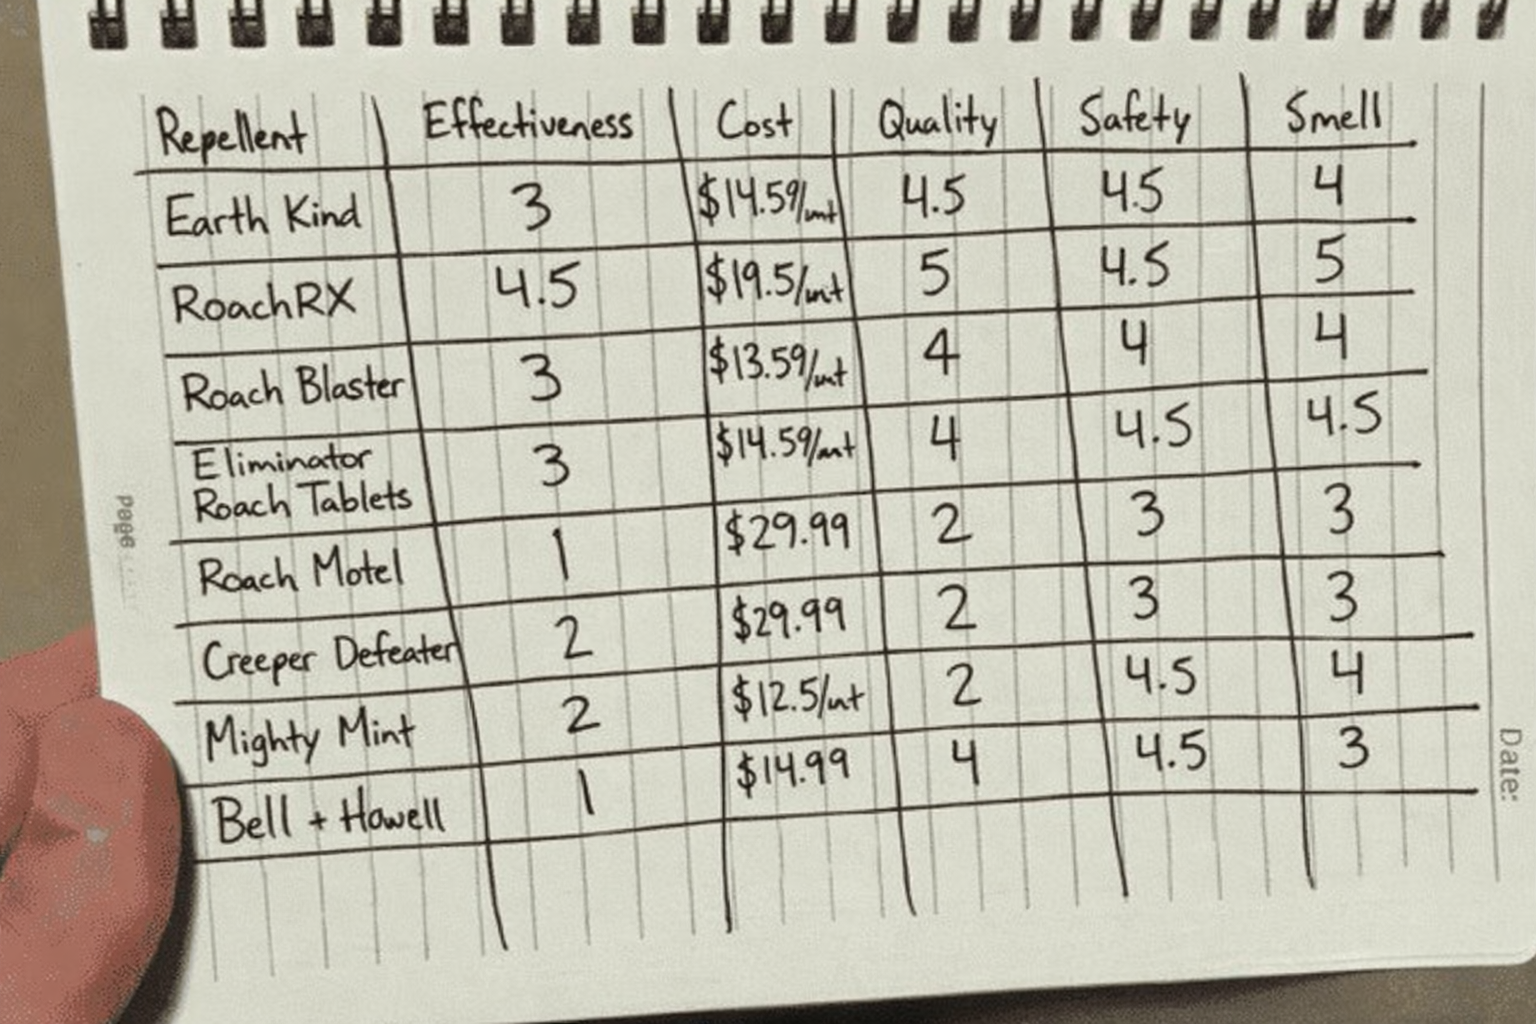 Repellent Effectiveness Cost Quality Safety Smell
Earth Kind 3 $14.59/unt 4.5 4.5 4
RoachRX 4.5 $19.5/unt 5 4.5 5
Roach Blaster 3 $13.59/unt 4 4 4
Eliminator
Roach Tablets 3 $14.59/unt 4 4.5 4.5
Roach Motel 1 $29.99 2 3 3
Creeper Defeater 2 $29.99 2 3 3
Mighty Mint 2 $12.5/unt 2 4.5 4
Bell + Howell 1 $14.99 4 4.5 3
Date: